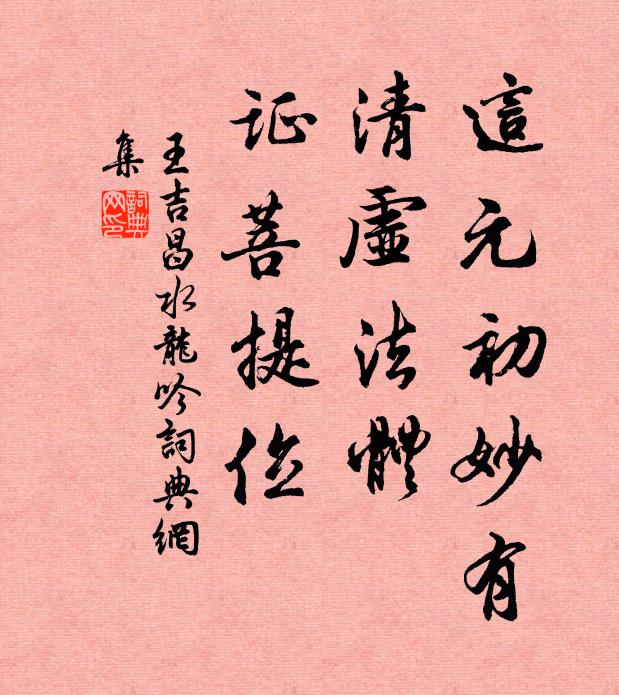 這元初妙有
清虛法體
証菩提位
王吉昌水龍吟詞典網
集
詞典
网印